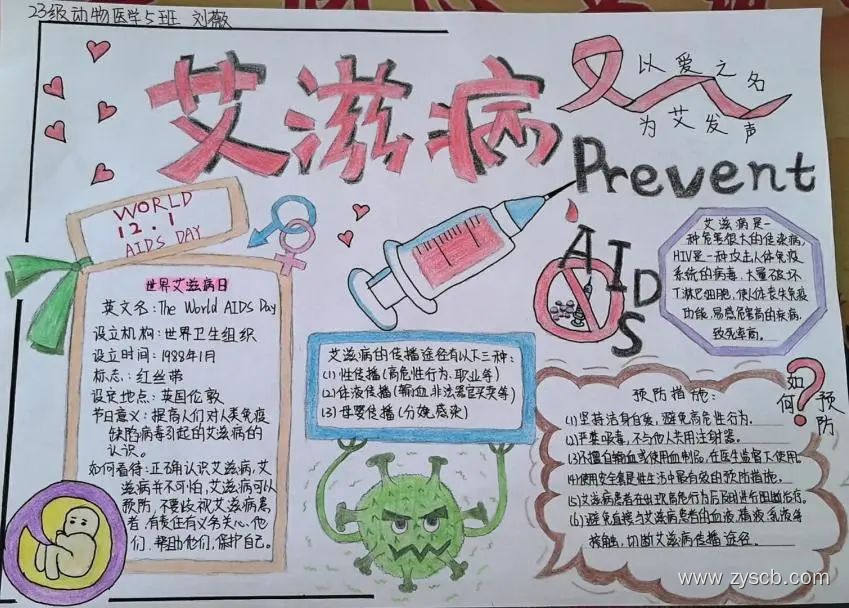 23级动物医学5班 刘薇
艾滋病
以爱之名
为艾发声
Prevent
AIDS
WORLD
12.1
AIDS DAY
世界艾滋病日
英文名:The World AIDS Day
设立机构:世界卫生组织
设立时间:1988年1月
标志:红丝带
设定地点:英国伦敦
节日意义:提高人们对人类免疫
缺陷病毒引起的艾滋病的
认识。
如何看待:正确认识艾滋病,艾
滋病并不可怕,艾滋病可以
预防,不要歧视艾滋病患
者,有责任有义务关心他
们,帮助他们,保护自己。
艾滋病的传播途径有以下三种:
(1)性传播(高危性行为、职业等)
(2)体液传播(输血、非法器官买卖等)
(3)母婴传播(分娩、感染)
艾滋病是一
种危害很大的传染病,
HIV是一种攻击人体免疫
系统的病毒,大量破坏
T淋巴细胞,使人体丧失免疫
功能,易感危害高的疾病,
致死率高。
如何预防?
预防措施:
(1)坚持洁身自爱,避免高危性行为.
(2)严禁吸毒,不与他人共用注射器。
(3)不擅自输血或使用血制品,在医生监督下使用。
(4)使用安全套是性生活中最有效的预防措施。
(5)艾滋病患者在出次高危行为后及时进行阻断治疗。
(6)避免直接与艾滋病患者的血液、精液、乳液等
接触,切断艾滋病传播途径。
www.zyscb.com